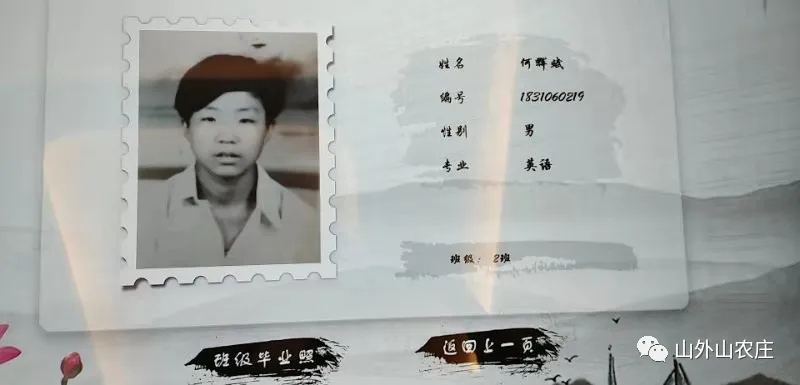 姓名 何辉斌
编号 1831060219
性别 男
专业 英语
班级： 2班
班级毕业照
返回上一页
山外山农庄